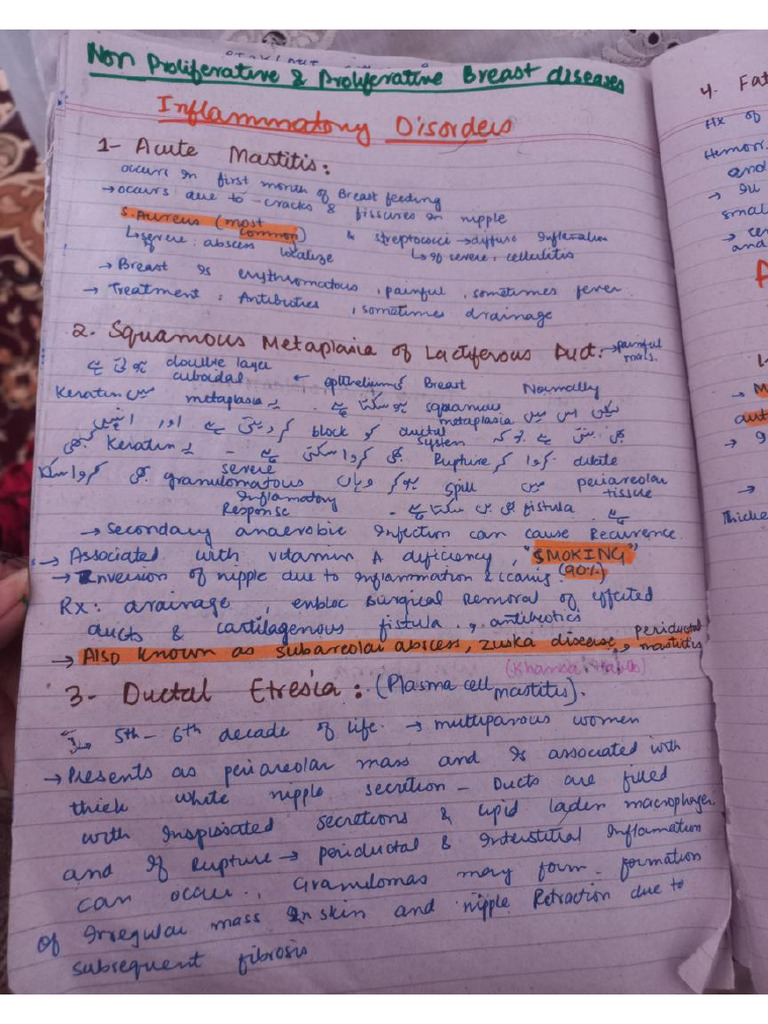 Non Proliferative & Proliferative Breast diseases
Inflammatory Disorders
1- Acute Mastitis:
occurs in first month of Breast feeding
→ occurs due to - cracks & fissures on nipple
S. Aureus (most common) & streptococci → diffuse inflamation
↳ severe: abscess localize
↳ if severe, cellulitis
→ Breast is erythromatous, painful, sometimes fever
→ Treatment: Antibiotics, sometimes drainage
2. Squamous Metaplasia of Lactiferous Duct: → painful mass.
Normally Breast کی epithelium ← double layer cuboidal ہوتی ہے
لیکن اس میں squamous metaplasia ہو سکتا ہے - یہ metaplasia میں Keratin
بھی بنتی ہے جو کہ ductal system کو block کر دیتی ہے اور انہیں
dilate کروا کر Rupture بھی کروا سکتی ہے - یہ Keratin کبھی
periareolar tissue میں spill ہو کر وہاں severe granulomatous Inflamatory Response بھی کروا سکتا
ہے - fistula بھی بن سکتا ہے
→ Secondary anaerobic Infection can cause Recurrence.
→ Associated with vitamin A dificiency, "SMOKING" (90%)
→ Inversion of nipple due to Inflammation & scaring.
Rx: drainage, enbloc surgical Removal of effected
ducts & cartilagenous fistula, antibiotics
→ Also known as subareolar abscess, zuska disease, periductal mastitis
3- Ductal Etresia: (Plasma cell mastitis).
5th - 6th decade of life. → multiparous women
→ Presents as periareolar mass and is associated with
thick white nipple secretion - Ducts are filled
with Inspissated secretions & lipid laden macrophages
and if Rupture → periductal & Interstitial Inflamation
can occur. Granulomas may form. formation
of Irregular mass In skin and nipple Retraction due to
subsequent fibrosis
4. Fat
Hx of
Hemorr.
and
small
and
Thicke